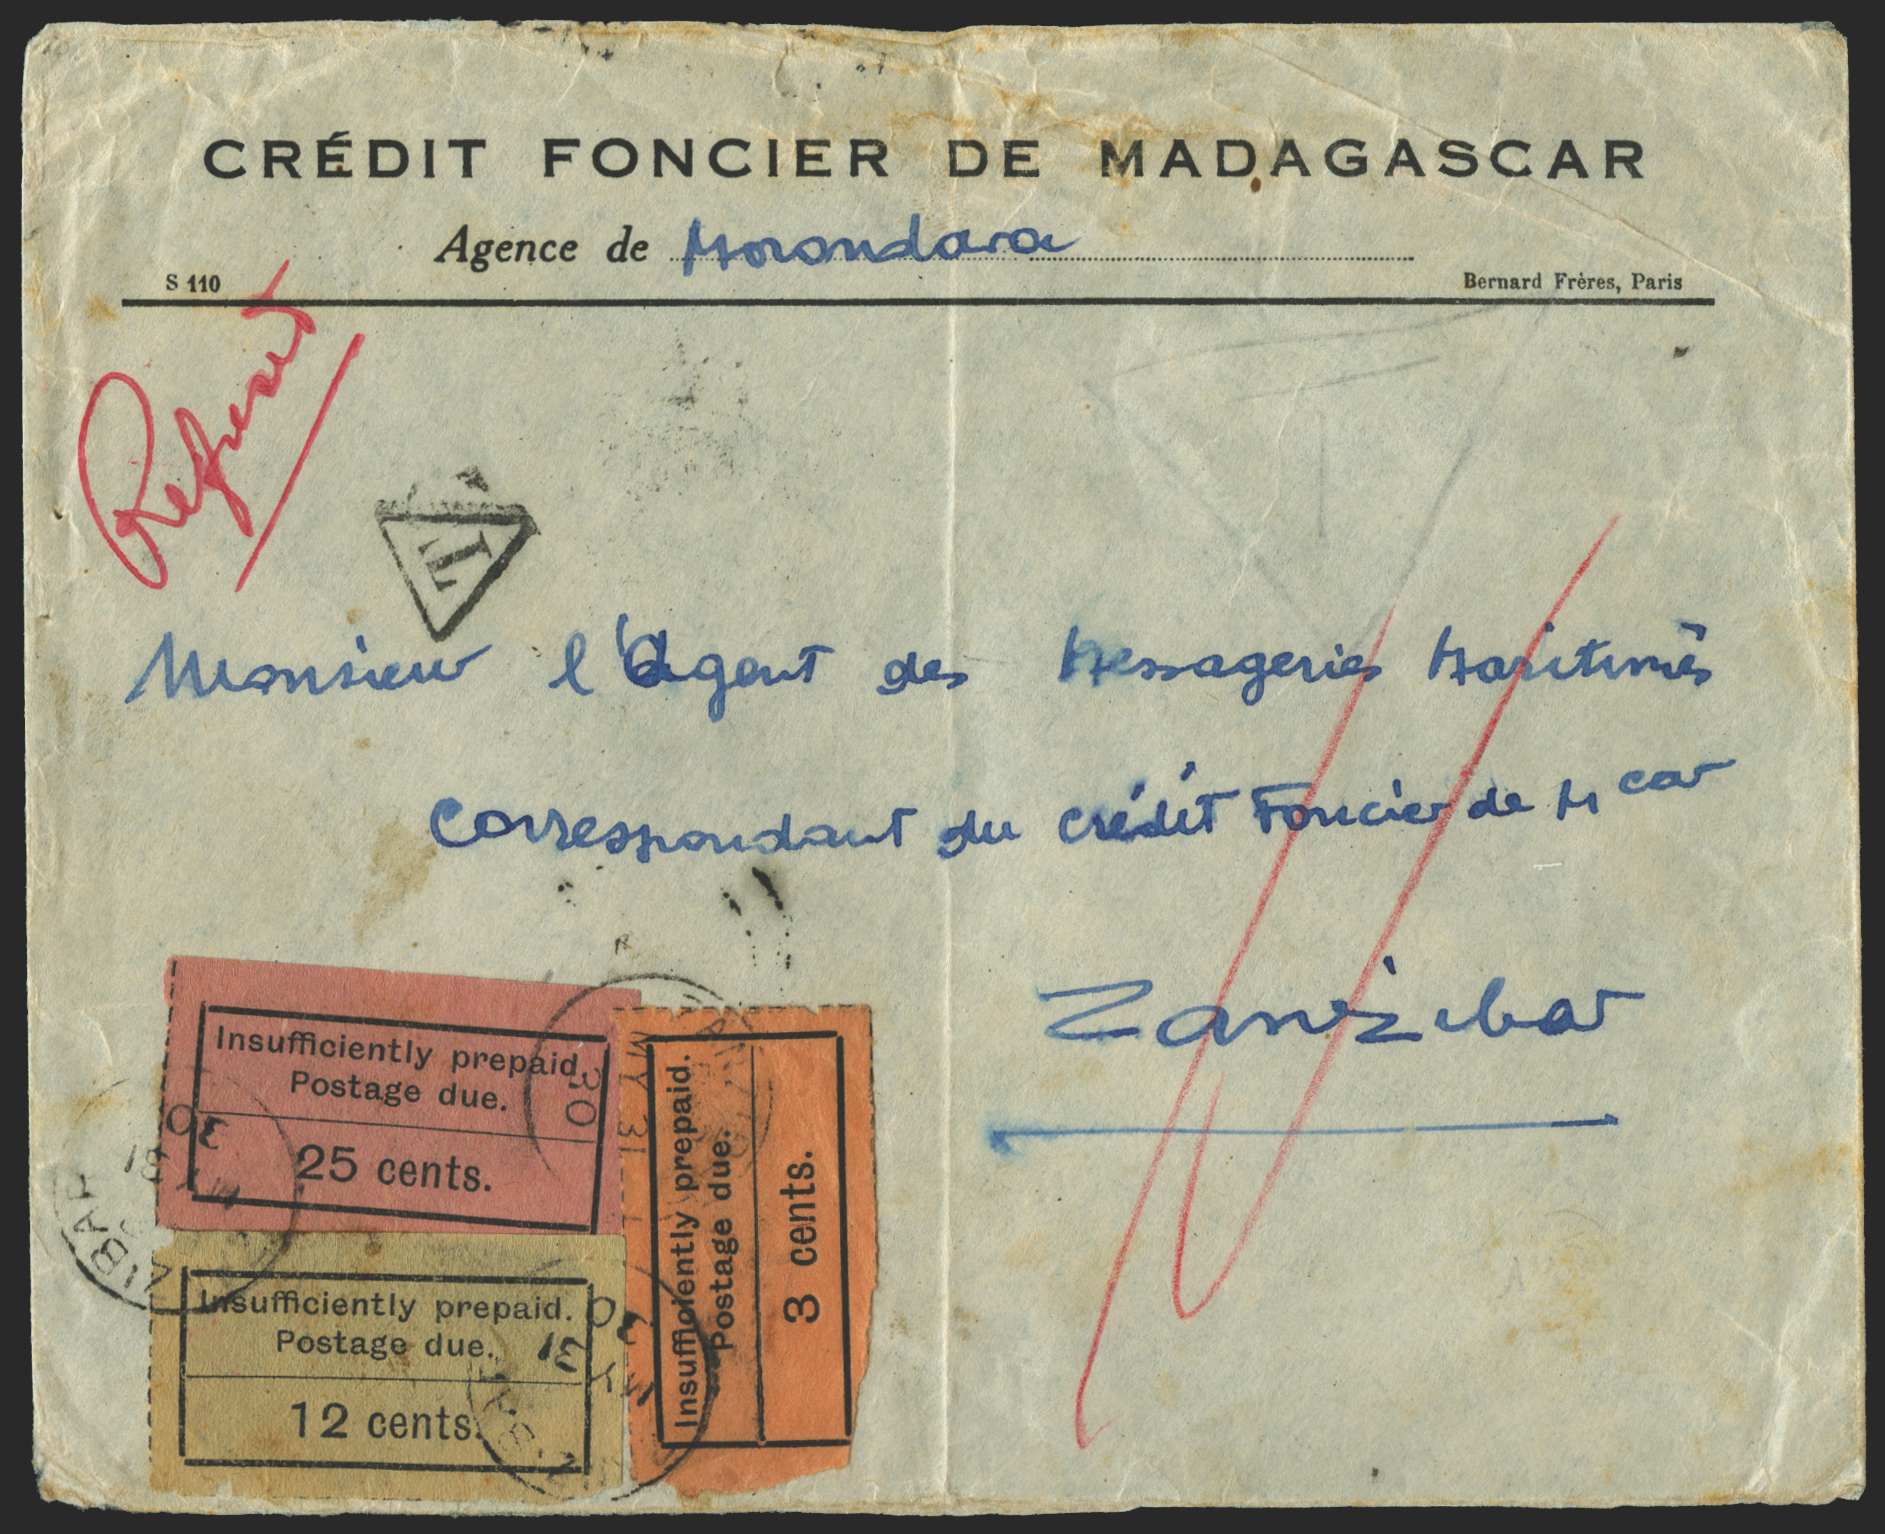 CRÉDIT FONCIER DE MADAGASCAR
Agence de Morondava
S 110
Bernard Frères, Paris
Refused
T
Monsieur l'Agent des Messageries Maritimes
Correspondant du Crédit Foncier de Mcar
Zanzibar
Insufficiently prepaid.
Postage due.
25 cents.
Insufficiently prepaid.
Postage due.
3 cents.
Insufficiently prepaid.
Postage due.
12 cents.
MY 31
30
30
MY 31
30
MY 31